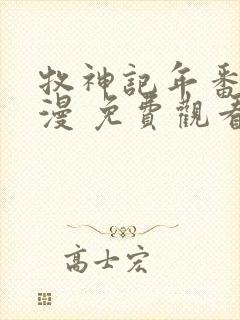 牧神記年番
漫 免費觀看
高士宏